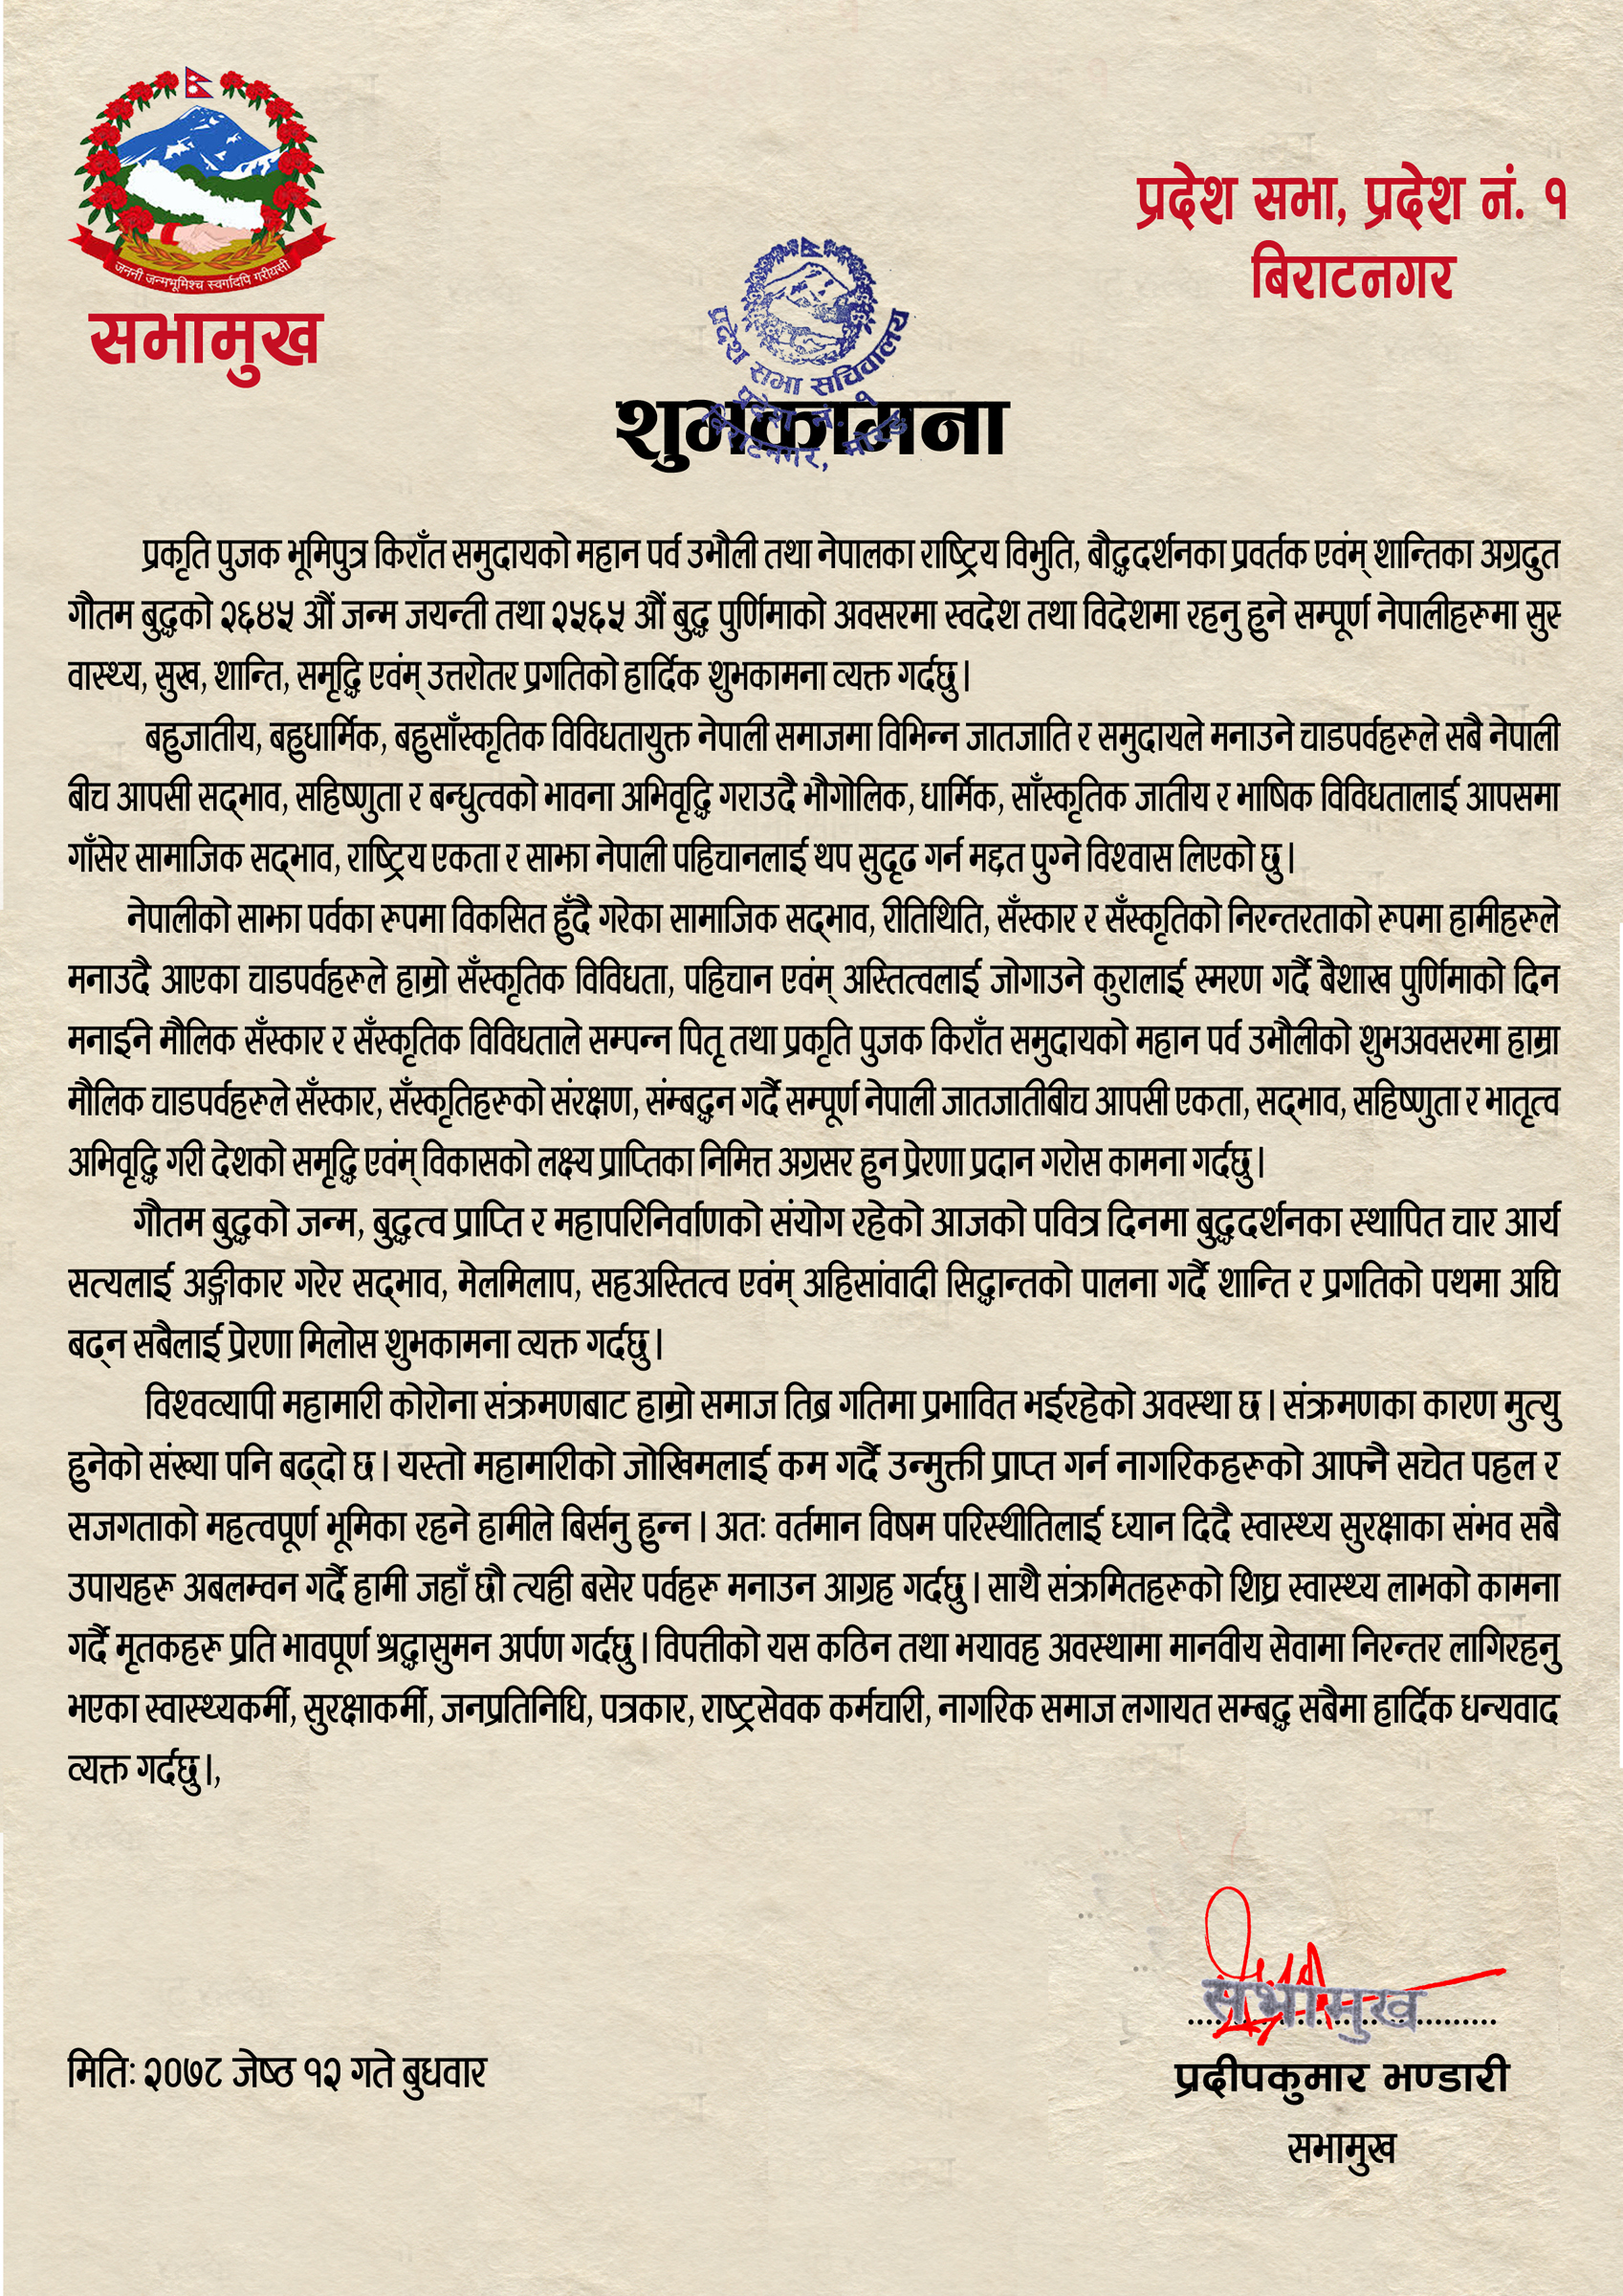 जननी जन्मभूमिश्च स्वर्गादपि गरीयसी
सभामुख
प्रदेश सभा, प्रदेश नं. १
बिराटनगर
प्रदेश सभा सचिवालय
प्रदेश नं. १
बिराटनगर, मोरङ
शुभकामना
प्रकृति पुजक भूमिपुत्र किराँत समुदायको महान पर्व उभौली तथा नेपालका राष्ट्रिय विभुति, बौद्धदर्शनका प्रवर्तक एवंम् शान्तिका अग्रदुत
गौतम बुद्धको २६४५ औं जन्म जयन्ती तथा २५६५ औं बुद्ध पुर्णिमाको अवसरमा स्वदेश तथा विदेशमा रहनु हुने सम्पूर्ण नेपालीहरूमा सुस
वास्थ्य, सुख, शान्ति, समृद्धि एवंम् उत्तरोतर प्रगतिको हार्दिक शुभकामना व्यक्त गर्दछु।
बहुजातीय, बहुधार्मिक, बहुसाँस्कृतिक विविधतायुक्त नेपाली समाजमा विभिन्न जातजाति र समुदायले मनाउने चाडपर्वहरूले सबै नेपाली
बीच आपसी सद्‌भाव, सहिष्णुता र बन्धुत्वको भावना अभिवृद्धि गराउदै भौगोलिक, धार्मिक, साँस्कृतिक जातीय र भाषिक विविधतालाई आपसमा
गाँसेर सामाजिक सद्‌भाव, राष्ट्रिय एकता र साझा नेपाली पहिचानलाई थप सुदृढ गर्न मद्दत पुग्ने विश्वास लिएको छु।
नेपालीको साझा पर्वका रूपमा विकसित हुँदै गरेका सामाजिक सद्‌भाव, रीतिथिति, सँस्कार र सँस्कृतिको निरन्तरताको रूपमा हामीहरूले
मनाउदै आएका चाडपर्वहरूले हाम्रो सँस्कृतिक विविधता, पहिचान एवंम् अस्तित्वलाई जोगाउने कुरालाई स्मरण गर्दै बैशाख पुर्णिमाको दिन
मनाईने मौलिक सँस्कार र सँस्कृतिक विविधताले सम्पन्न पितृ तथा प्रकृति पुजक किराँत समुदायको महान पर्व उभौलीको शुभअवसरमा हाम्रा
मौलिक चाडपर्वहरूले सँस्कार, सँस्कृतिहरूको संरक्षण, संम्बद्धन गर्दै सम्पूर्ण नेपाली जातजातीबीच आपसी एकता, सद्‌भाव, सहिष्णुता र भातृत्व
अभिवृद्धि गरी देशको समृद्धि एवंम् विकासको लक्ष्य प्राप्तिका निमित्त अग्रसर हुन प्रेरणा प्रदान गरोस कामना गर्दछु।
गौतम बुद्धको जन्म, बुद्धत्व प्राप्ति र महापरिनिर्वाणको संयोग रहेको आजको पवित्र दिनमा बुद्धदर्शनका स्थापित चार आर्य
सत्यलाई अङ्गीकार गरेर सद्‌भाव, मेलमिलाप, सहअस्तित्व एवंम् अहिसांवादी सिद्धान्तको पालना गर्दै शान्ति र प्रगतिको पथमा अघि
बढ्न सबैलाई प्रेरणा मिलोस शुभकामना व्यक्त गर्दछु।
विश्वव्यापी महामारी कोरोना संक्रमणबाट हाम्रो समाज तिब्र गतिमा प्रभावित भईरहेको अवस्था छ। संक्रमणका कारण मुत्यु
हुनेको संख्या पनि बढ्दो छ। यस्तो महामारीको जोखिमलाई कम गर्दै उन्मुक्ती प्राप्त गर्न नागरिकहरूको आफ्नै सचेत पहल र
सजगताको महत्वपूर्ण भूमिका रहने हामीले बिर्सनु हुन्न। अतः वर्तमान विषम परिस्थीतिलाई ध्यान दिदै स्वास्थ्य सुरक्षाका संभव सबै
उपायहरू अबलम्वन गर्दै हामी जहाँ छौ त्यही बसेर पर्वहरू मनाउन आग्रह गर्दछु। साथै संक्रमितहरूको शिघ्र स्वास्थ्य लाभको कामना
गर्दै मृतकहरू प्रति भावपूर्ण श्रद्धासुमन अर्पण गर्दछु। विपत्तीको यस कठिन तथा भयावह अवस्थामा मानवीय सेवामा निरन्तर लागिरहनु
भएका स्वास्थ्यकर्मी, सुरक्षाकर्मी, जनप्रतिनिधि, पत्रकार, राष्ट्रसेवक कर्मचारी, नागरिक समाज लगायत सम्बद्ध सबैमा हार्दिक धन्यवाद
व्यक्त गर्दछु।,
सभामुख
मितिः २०७८ जेष्ठ १२ गते बुधवार
प्रदीपकुमार भण्डारी
सभामुख